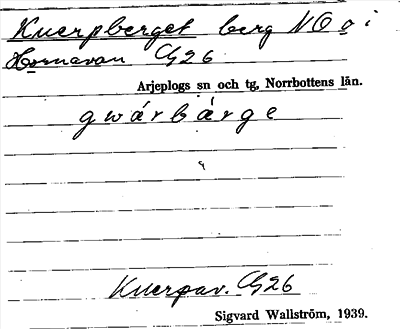 Kuerpberget berg NO o i
Hornavan G26
Arjeplogs sn och tg, Norrbottens län.
gwárbárge
Kuerpav. G26
Sigvard Wallström, 1939.